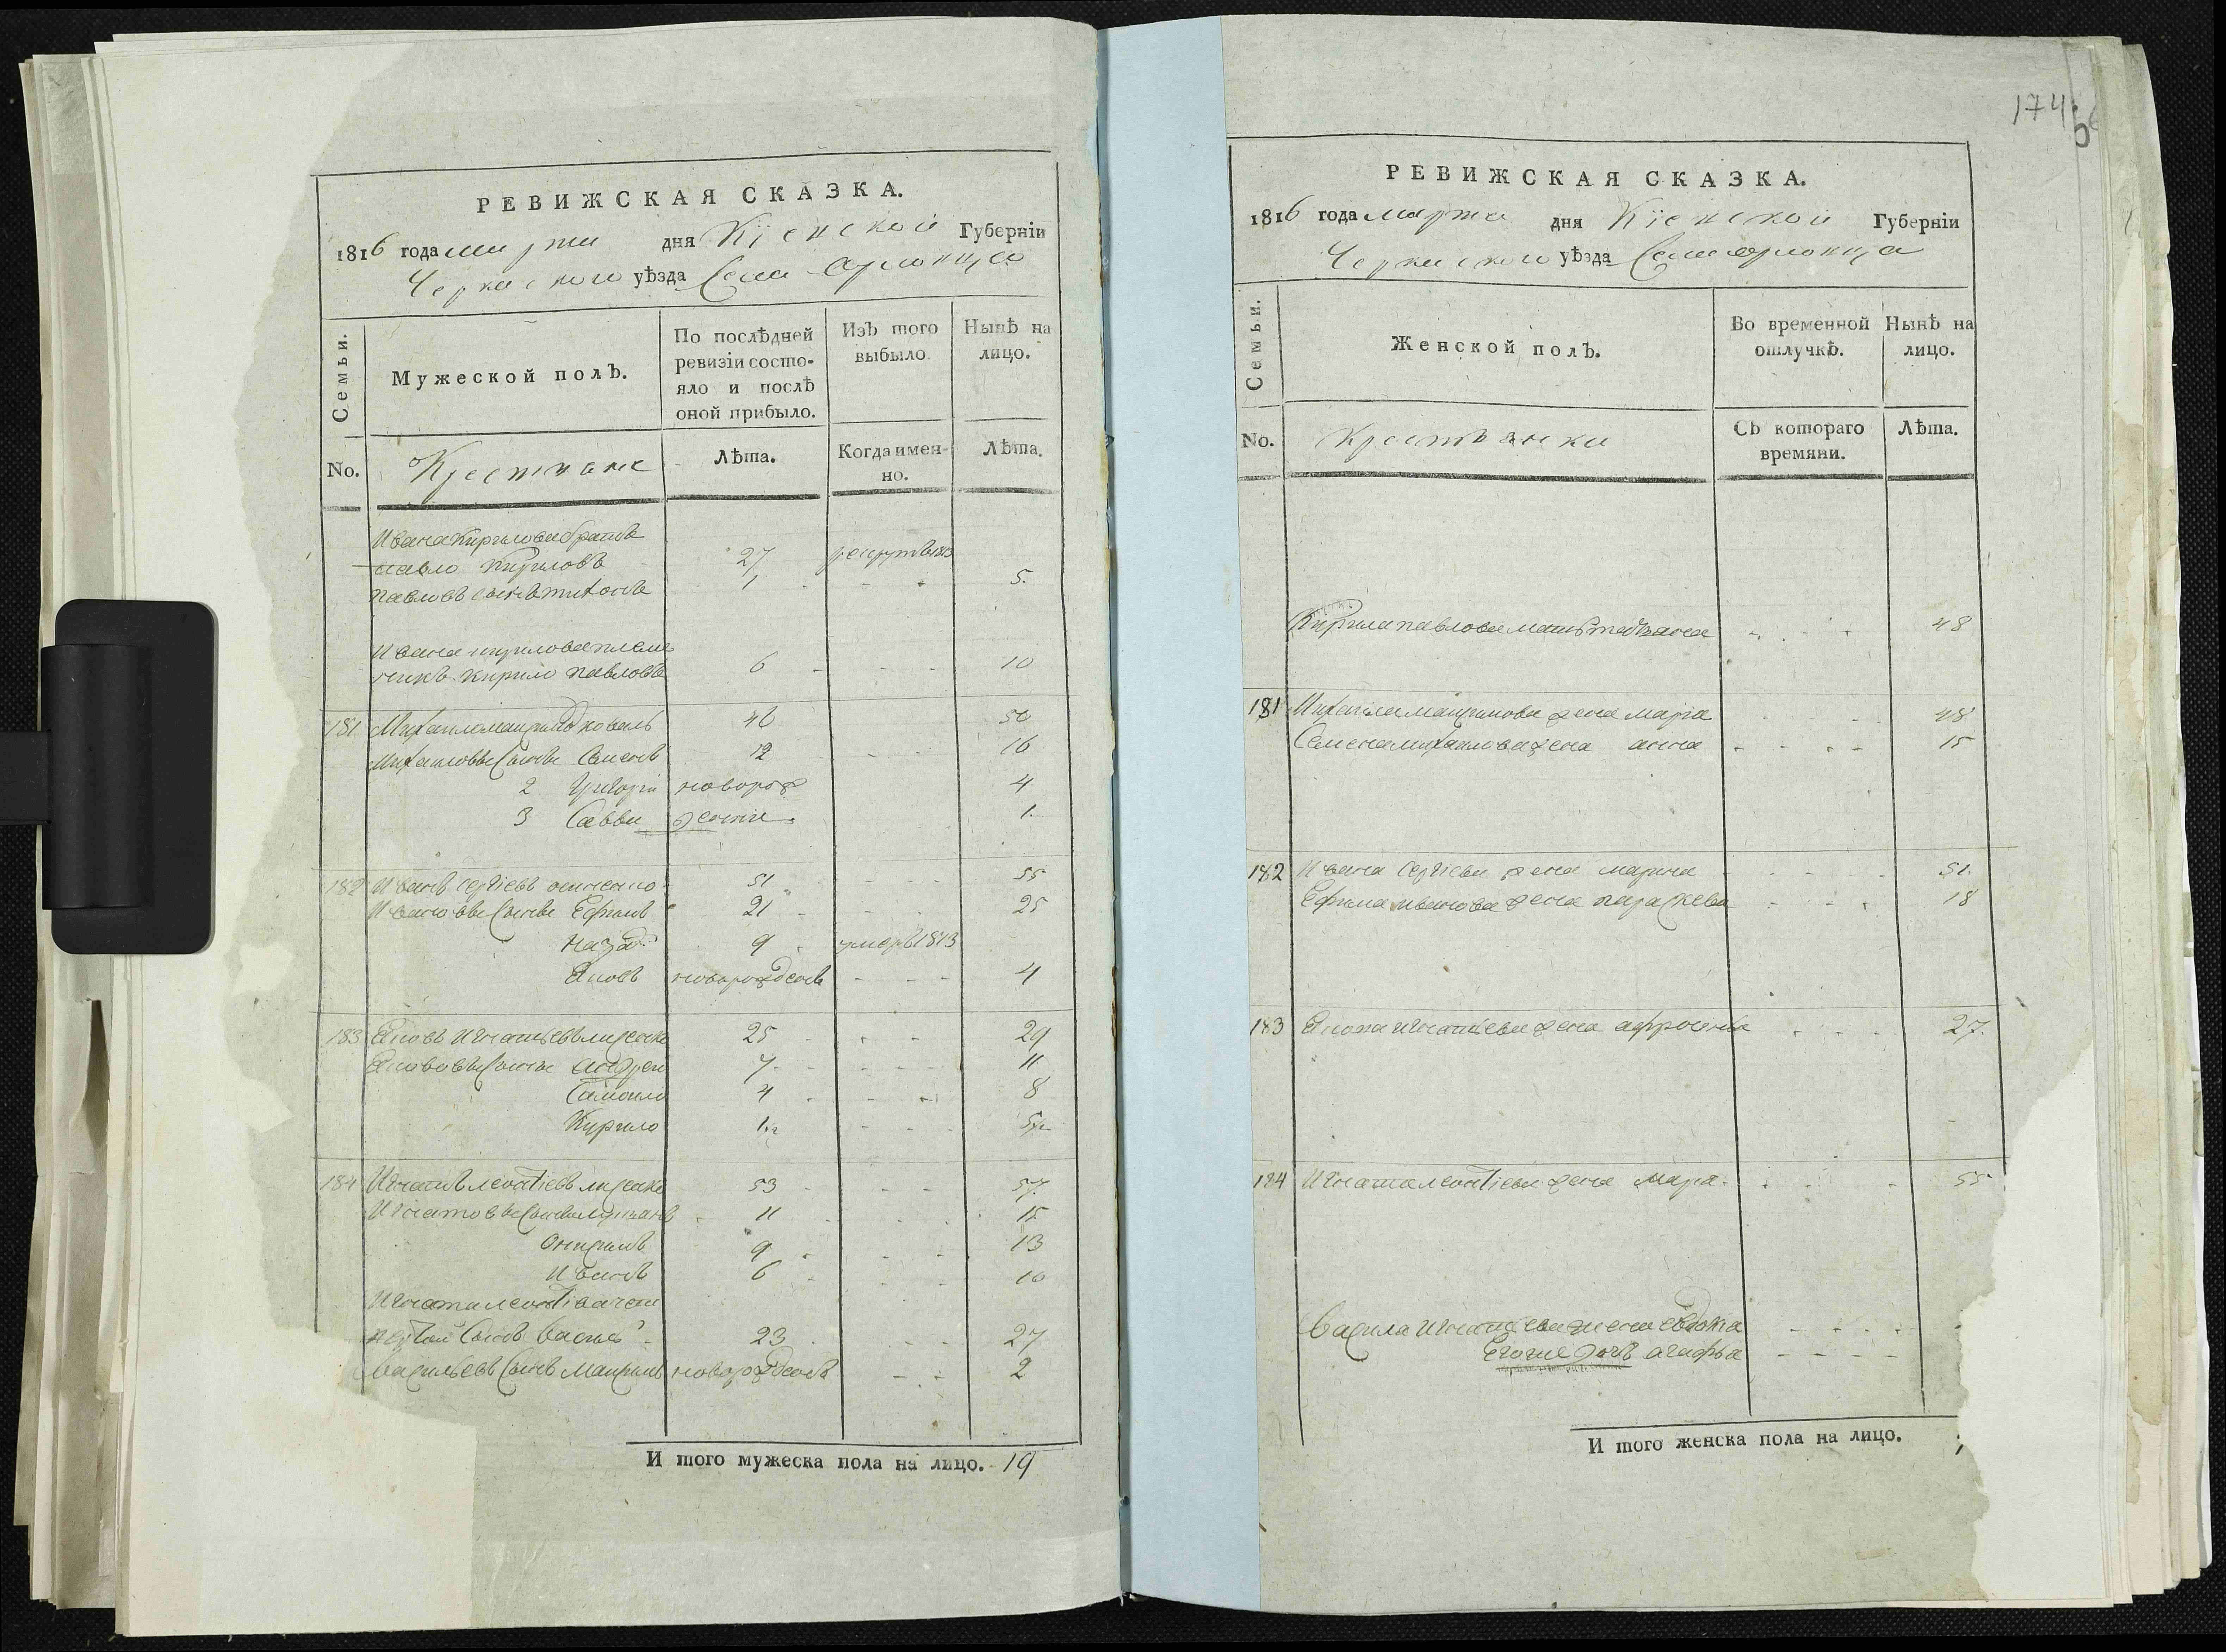 РЕВИЖСКАЯ СКАЗКА.
1816 года марта дня Кіевской Губерніи
Черкаского уѣзда Села Орловца
Семьи.
Мужеской полъ.
По послѣдней ревизіи состояло и послѣ оной прибыло.
Изъ того выбыло
Нынѣ на лицо.
No.
Крестьяне
Лѣта.
Когда именно.
Лѣта.
Ивана Кирилова братъ
павло Кириловъ 27 рекрутъ 1813
павловъ сынъ тихонъ 1 5.
Ивана кирилова племе
никъ кирило павловъ 6 10
181 Михаило коваль 46 50
Михаиловы Сыновья Семенъ 12 16
2 Григори новорож 4
3 Савва дении 1.
182 Иванъ Сергіевъ 51 55
Ивановы Сыновья Ефимъ 21 25
назаръ 9 умеръ 1813
Яковъ новорожденъ 4
183 Яковъ Игнатьевъ лисенко 25 29
Яковovы Сыновья андреи 7 11
Самоило 4 8
Кирило 1 5
184 Игнатъ леонтіевъ лисенко 53 57.
Игнатовы Сыновья 11 15
9 13
Иванъ 6 10
Игната леонтіева
первой Сынъ Василь 23 27
Васильевъ Сынъ Максимъ новорожденъ 2
И того мужеска пола на лицо. 19
174
РЕВИЖСКАЯ СКАЗКА.
1816 года марта дня Кіевской Губерніи
Черкаского уѣзда Села орловца
Семьи.
Женской полъ.
Во временной отлучкѣ.
Нынѣ на лицо.
No.
Крестьянки
Съ котораго времяни.
Лѣта.
Кирила павлова мать татьяна 48
181 Михаила жена марія 48
Семена михаилова жена анна 15
182 Ивана Сергіева жена марина 51.
Ефима иванова жена параскева 18
183 Якова игнатьева жена афросиня 27.
184 Игната леонтіева жена мара 55
Васила Игнатьева жена евдокія
Егоже дочь агафья
И того женска пола на лицо.